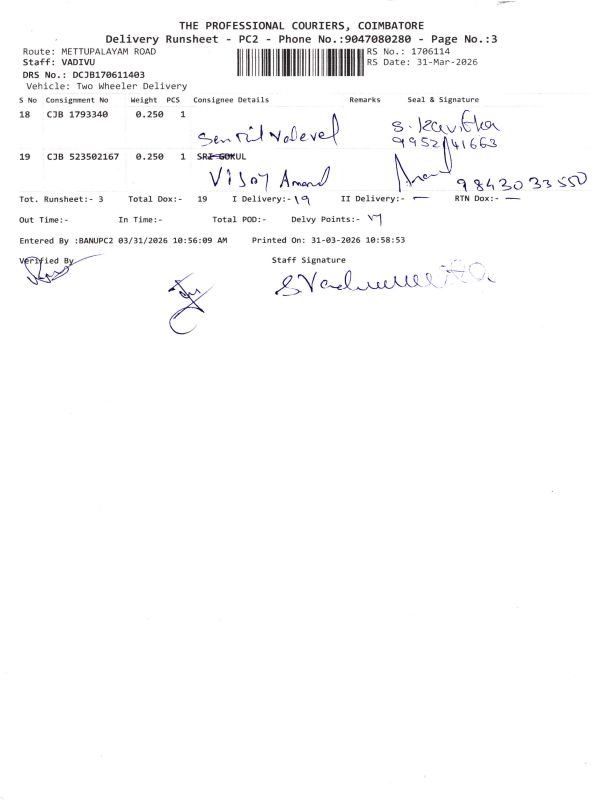 THE PROFESSIONAL COURIERS, COIMBATORE
Delivery Runsheet - PC2 - Phone No.:9047080280 - Page No.:3
Route: METTUPALAYAM ROAD RS No.: 1706114
Staff: VADIVU RS Date: 31-Mar-2026
DRS No.: DCJB170611403
Vehicle: Two Wheeler Delivery
S No Consignment No Weight PCS Consignee Details Remarks Seal & Signature
18 CJB 1793340 0.250 1
Senthil Vadevel S. Kavitha
9952141663
19 CJB 523502167 0.250 1 SRI GOKUL
Vijay Anand 9843033550
Tot. Runsheet:- 3 Total Dox:- 19 I Delivery:- 19 II Delivery:- — RTN Dox:- —
Out Time:- In Time:- Total POD:- Delvy Points:- 17
Entered By :BANUPC2 03/31/2026 10:56:09 AM Printed On: 31-03-2026 10:58:53
Verified By Staff Signature